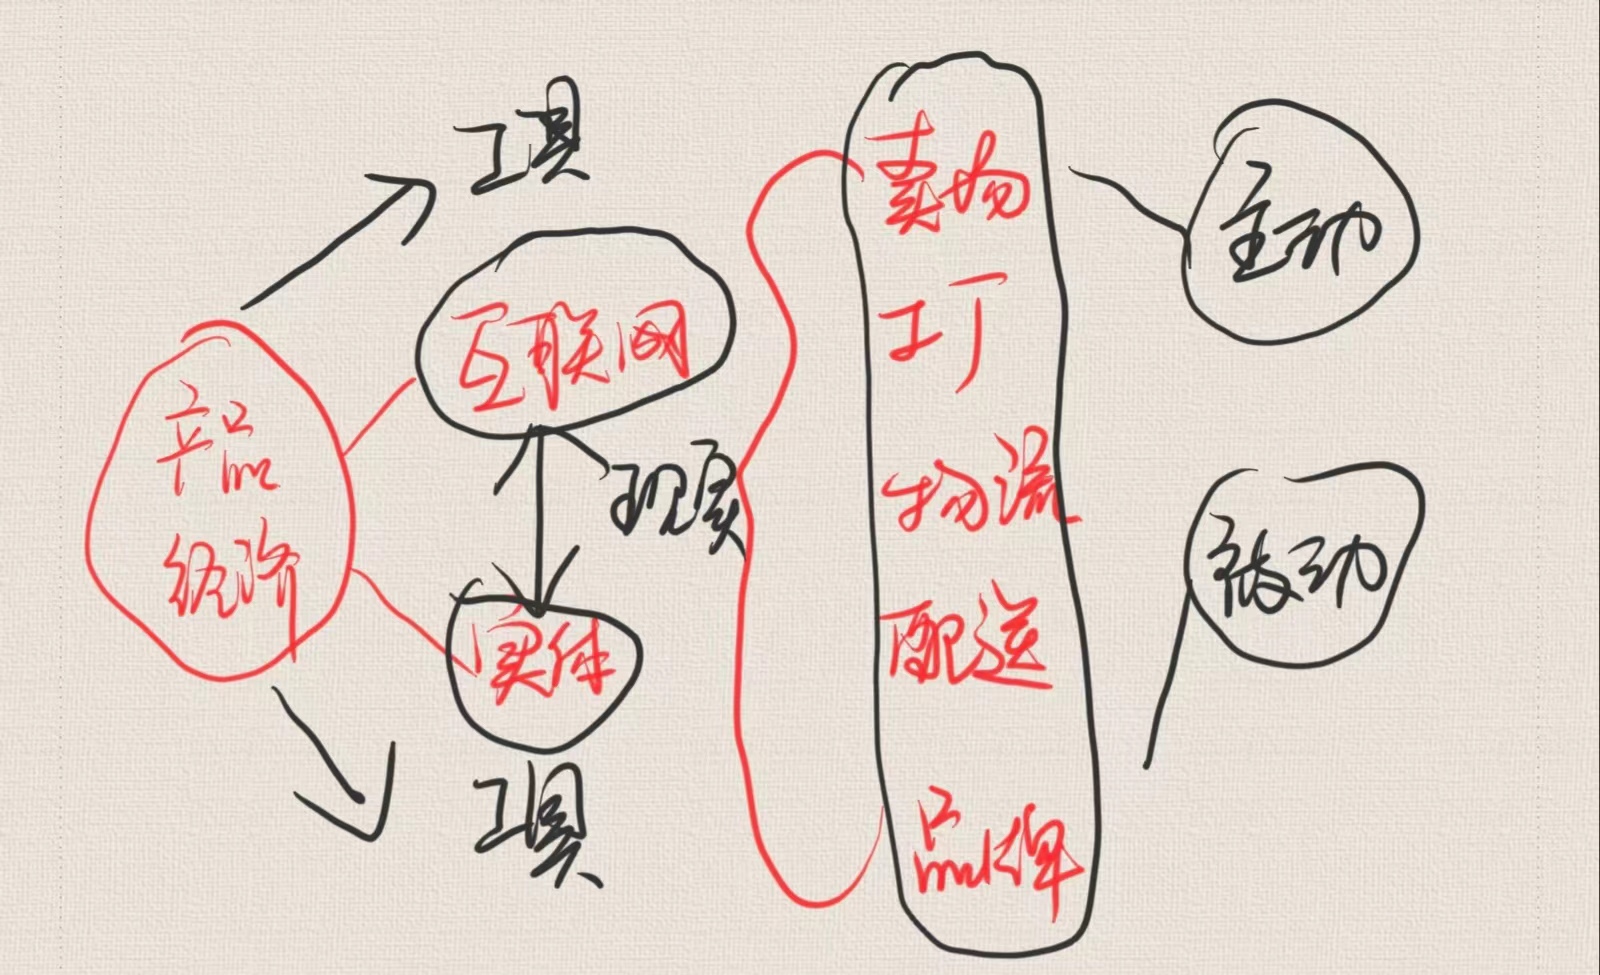 工具
互联网
产品
经济
现实
实体
工具
卖场
工厂
物流
配送
品牌
主动
被动